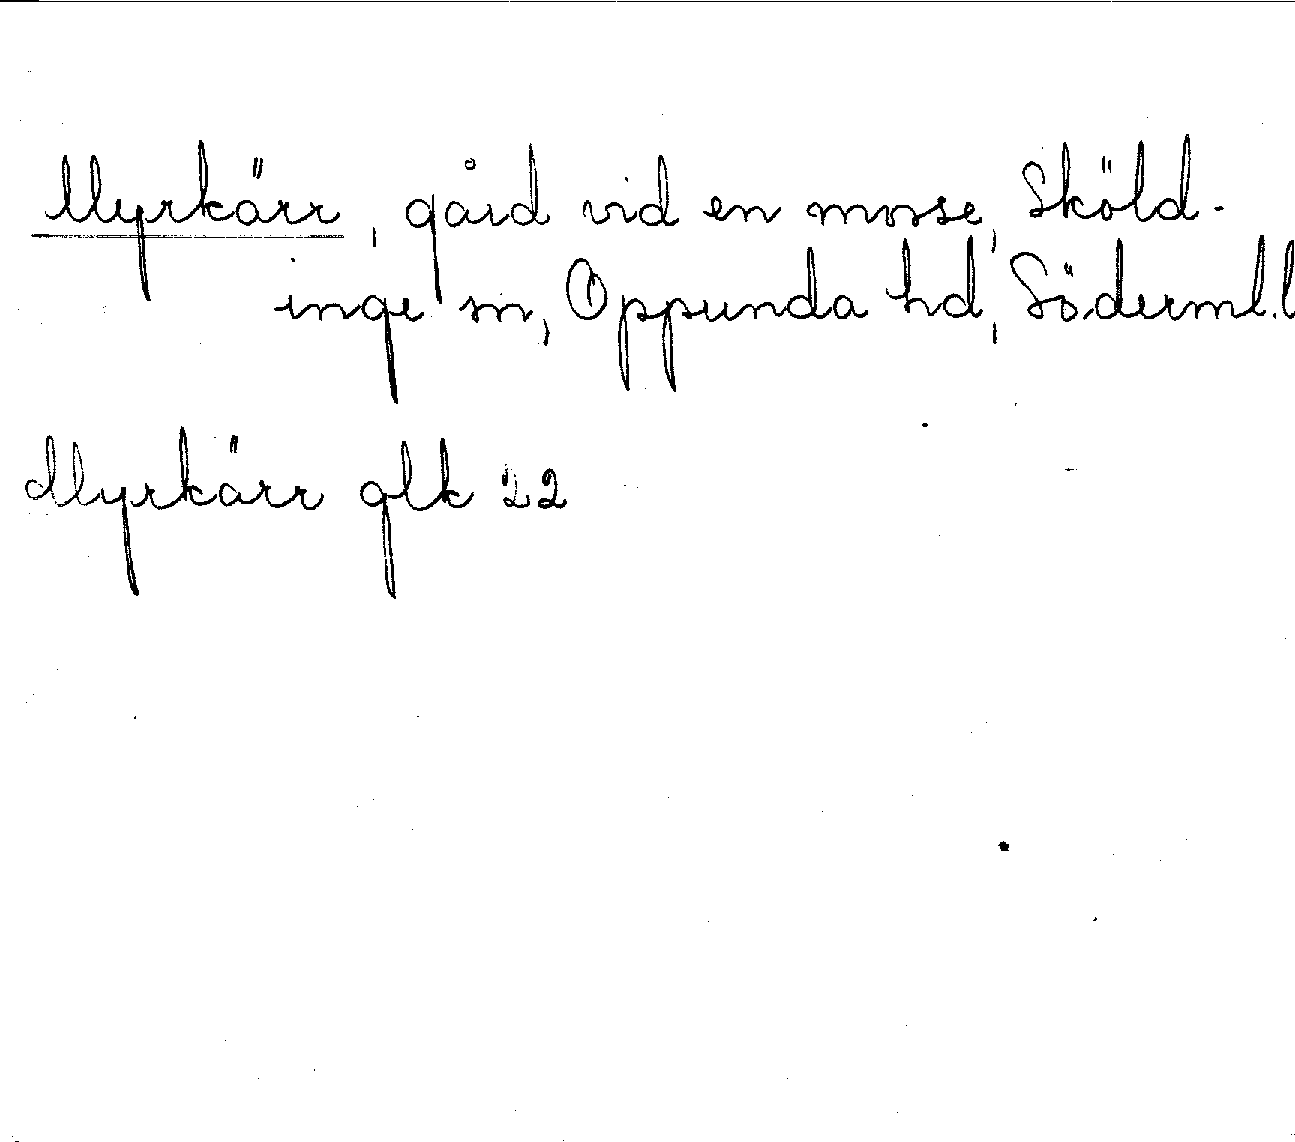 Myrkärr, gård vid en mosse, Sköld-
inge sn, Oppunda hd, Söderml.l
Myrkärr glk 22